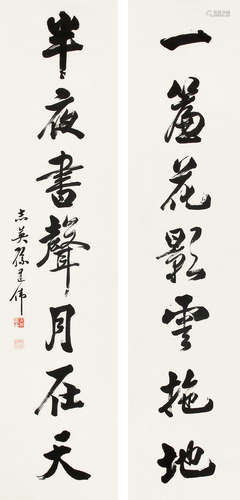 一簾花影雲拖地
半夜書聲月在天
志英孫建偉